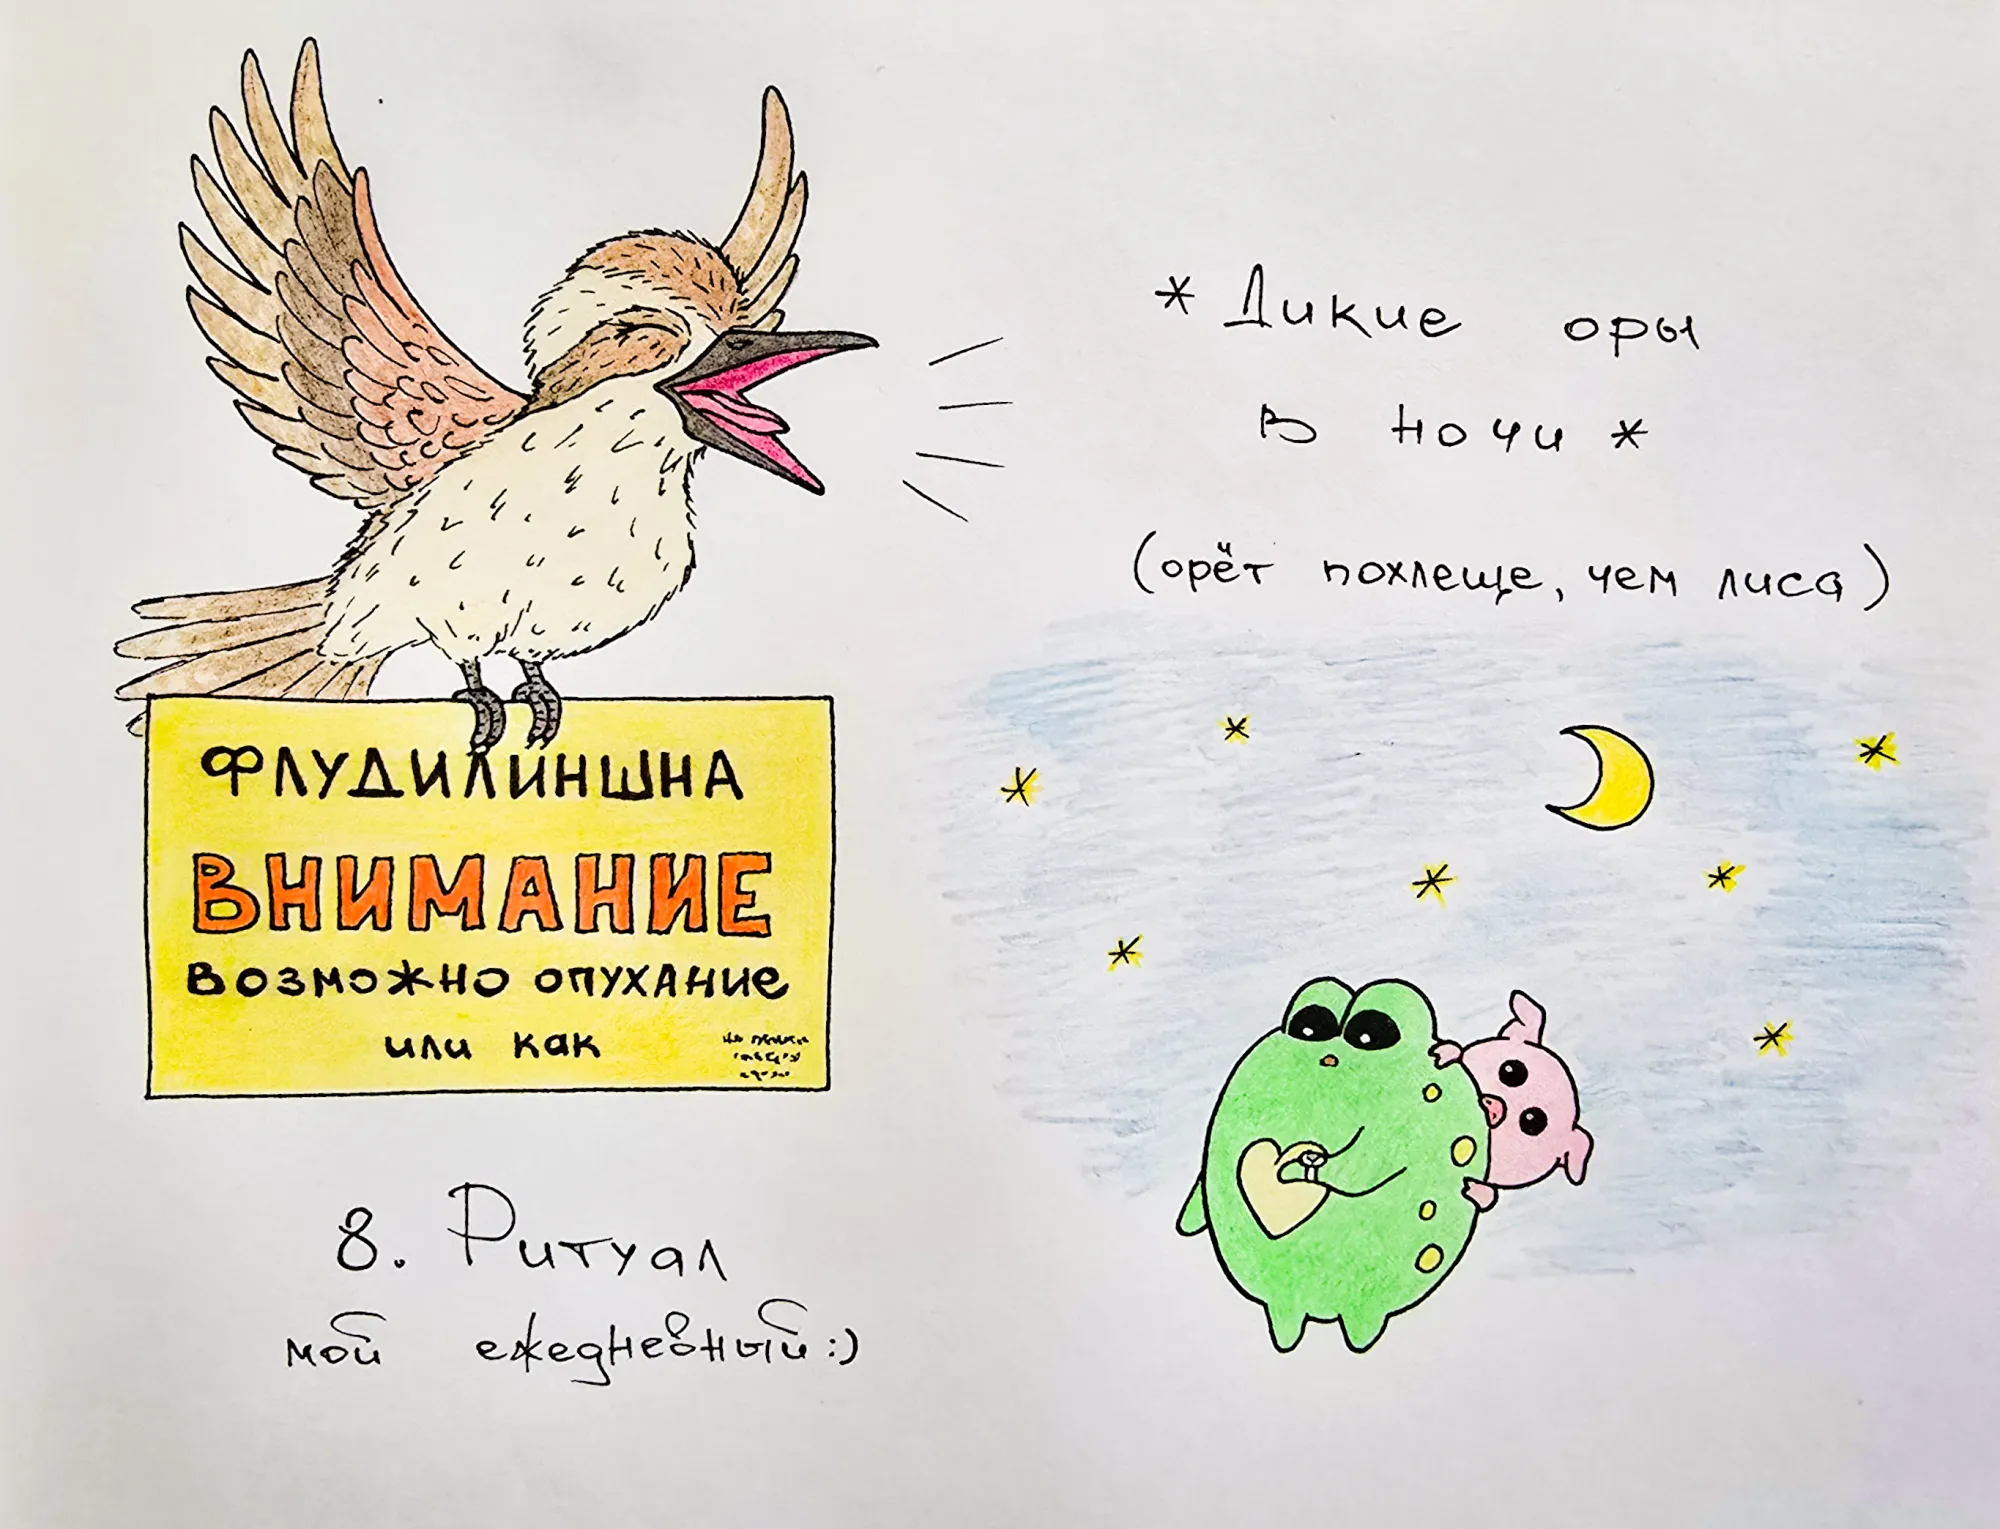 * Дикие оры
в ночи *
(орёт похлеще, чем лиса)
ФЛУДИЛИНШНА
ВНИМАНИЕ
возможно опухание
или как
8. Ритуал
мой ежедневный :)